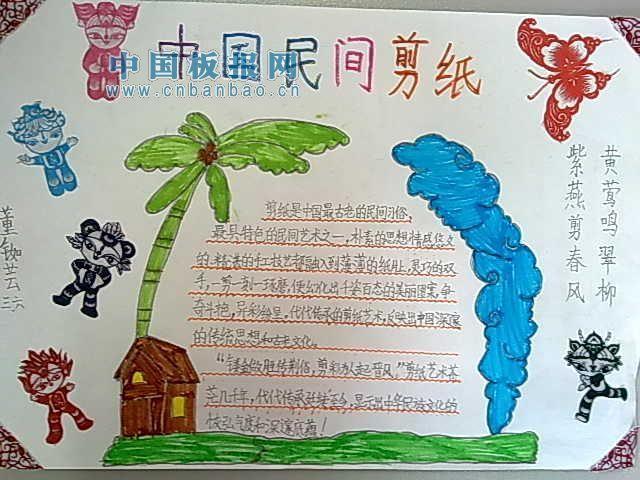 中国民间剪纸
中国板报网
www.cnbanbao.cn
黄莺鸣翠柳
紫燕剪春风
董
芸
剪纸是中国最古色的民间习俗,
最具特色的民间艺术之一,朴素的思想情感
的手工技艺都融入到薄薄的纸上,灵巧的双
手,一剪一刻一琢磨,便幻化出千姿百态的美丽图案,争
奇斗艳,异彩纷呈,代代传承的剪纸艺术,反映出中国深邃
的传统思想和古老文化。
“镂金作胜传荆俗,剪彩为人起晋风。”剪纸艺术
几千年,代代传承至今,显示出中华民族文化的
恢弘气度和深邃底蕴!